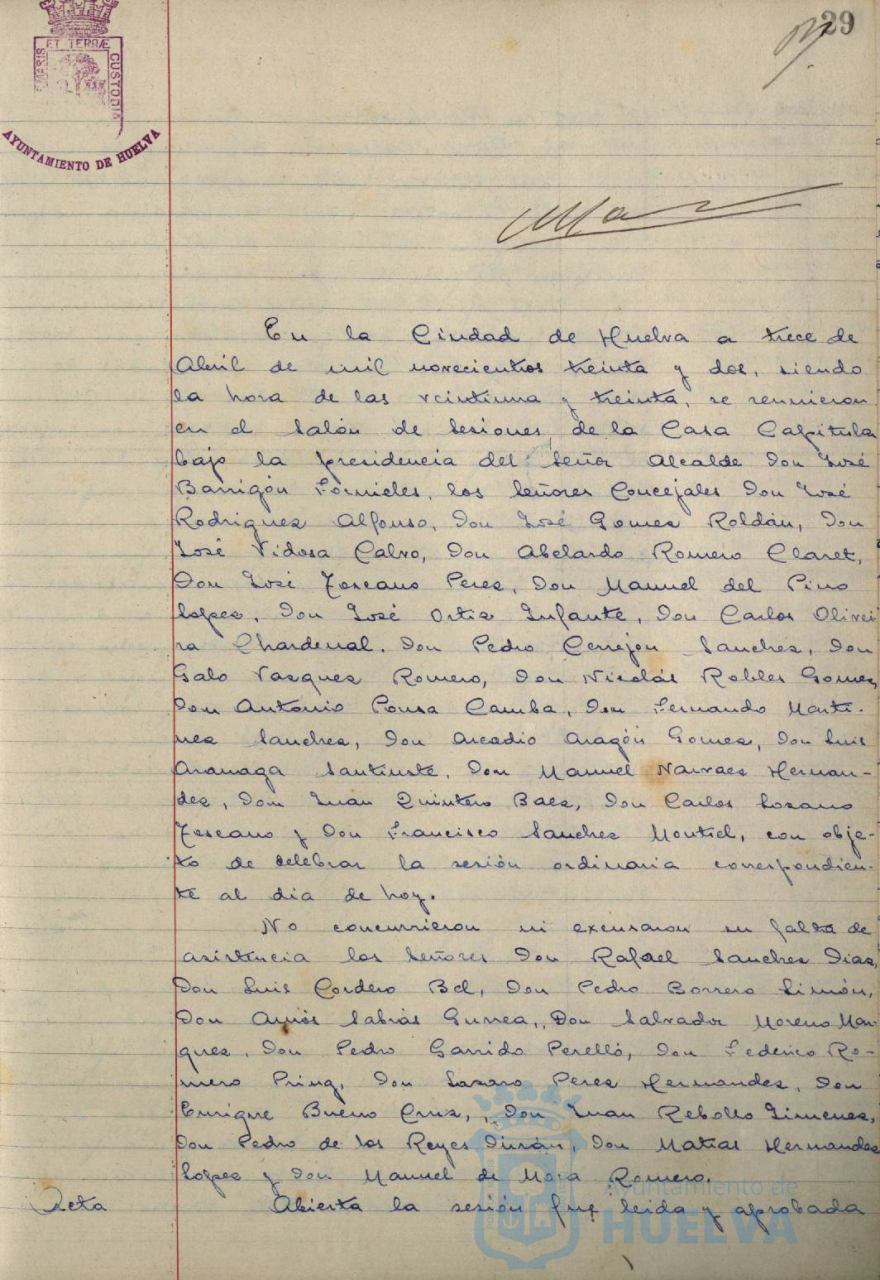 29
MARIS ET TERRÆ CUSTODIA
AYUNTAMIENTO DE HUELVA
En la Ciudad de Huelva a trece de
Abril de mil novecientos treinta y dos, siendo
la hora de las veintiuna y treinta, se reunieron
en el Salón de Sesiones de la Casa Capitular
bajo la presidencia del Señor Alcalde Don José
Barrigón Fornieles, los Señores Concejales Don José
Rodriguez Alfonso, Don José Gomez Roldán, Don
José Vidosa Calvo, Don Abelardo Romero Claret,
Don José Toscano Perez, Don Manuel del Pino
Lopez, Don José Ortiz Infante, Don Carlos Olivei
ra Chardenal, Don Pedro Cerrejón Sanchez, Don
Galo Vazquez Romero, Don Nicolás Robles Gomez,
Don Antonio Pousa Camba, Don Fernando Marti-
nez Sanchez, Don Arcadio Aragón Gomez, Don Luis
Aramaga Santiuste, Don Manuel Narvaez Hernan-
dez, Don Juan Quintero Baez, Don Carlos Lozano
Toscano y Don Francisco Sanchez Montiel, con obje-
to de celebrar la sesión ordinaria correspondien-
te al dia de hoy.
No concurrieron ni excusaron su falta de
asistencia los Señores Don Rafael Sanchez Diaz,
Don Luis Cordero Bel, Don Pedro Borrero Limón,
Don Amós Sabrás Gurrea, Don Salvador Moreno Mar
quez, Don Pedro Garrido Perelló, Don Federico Ro-
mero Pring, Don Lazaro Perez Hernandez, Don
Enrique Bueno Cruz, Don Juan Rebollo Jimenez,
Don Pedro de los Reyes Durán, Don Matias Hernandez
Lopez y Don Manuel de Mora Romero.
Acta Abierta la sesión fué leida y aprobada
Ayuntamiento de
HUELVA